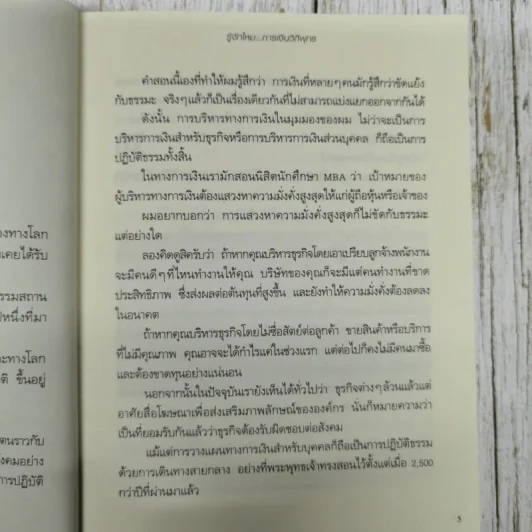 รู้จักไหม...การเงินวิถีพุทธ
คำสอนนี้เองที่ทำให้ผมรู้สึกว่า การเงินที่หลายๆคนมักรู้สึกว่าขัดแย้ง
กับธรรมะ จริงๆแล้วก็เป็นเรื่องเดียวกันที่ไม่สามารถแบ่งแยกออกจากกันได้
ดังนั้น การบริหารทางการเงินในมุมมองของผม ไม่ว่าจะเป็นการ
บริหารการเงินสำหรับธุรกิจหรือการบริหารการเงินส่วนบุคคล ก็ถือเป็นการ
ปฏิบัติธรรมทั้งสิ้น
ในทางการเงินเรามักสอนนิสิตนักศึกษา MBA ว่า เป้าหมายของ
ผู้บริหารทางการเงินต้องแสวงหาความมั่งคั่งสูงสุดให้แก่ผู้ถือหุ้นหรือเจ้าของ
ผมอยากบอกว่า การแสวงหาความมั่งคั่งสูงสุดก็ไม่ขัดกับธรรมะ
แต่อย่างใด
ลองคิดดูสิครับว่า ถ้าหากคุณบริหารธุรกิจโดยเอาเปรียบลูกจ้างพนักงาน
จะมีคนดีๆที่ไหนทำงานให้คุณ บริษัทของคุณก็จะมีแต่คนทำงานที่ขาด
ประสิทธิภาพ ซึ่งส่งผลต่อต้นทุนที่สูงขึ้น และยังทำให้ความมั่งคั่งต้องลดลง
ในอนาคต
ถ้าหากคุณบริหารธุรกิจโดยไม่ซื่อสัตย์ต่อลูกค้า ขายสินค้าหรือบริการ
ที่ไม่มีคุณภาพ คุณอาจจะได้กำไรแค่ในช่วงแรก แต่ต่อไปก็คงไม่มีคนมาซื้อ
และต้องขาดทุนอย่างแน่นอน
นอกจากนั้นในปัจจุบันเรายังเห็นได้ทั่วไปว่า ธุรกิจต่างๆล้วนแล้วแต่
อาศัยสื่อโฆษณาเพื่อส่งเสริมภาพลักษณ์ขององค์กร นั่นก็หมายความว่า
เป็นที่ยอมรับกันแล้วว่าธุรกิจต้องรับผิดชอบต่อสังคม
แม้แต่การวางแผนทางการเงินสำหรับบุคคลก็ถือเป็นการปฏิบัติธรรม
ด้วยการเดินทางสายกลาง อย่างที่พระพุทธเจ้าทรงสอนไว้ตั้งแต่เมื่อ 2,500
กว่าปีที่ผ่านมาแล้ว
5
งทางโลก
เคยได้รับ
รรมสถาน
หนึ่งที่มา
ะทางโลก
ติ ขึ้นอยู่
ตนราวกับ
งคมอย่าง
การปฏิบัติ